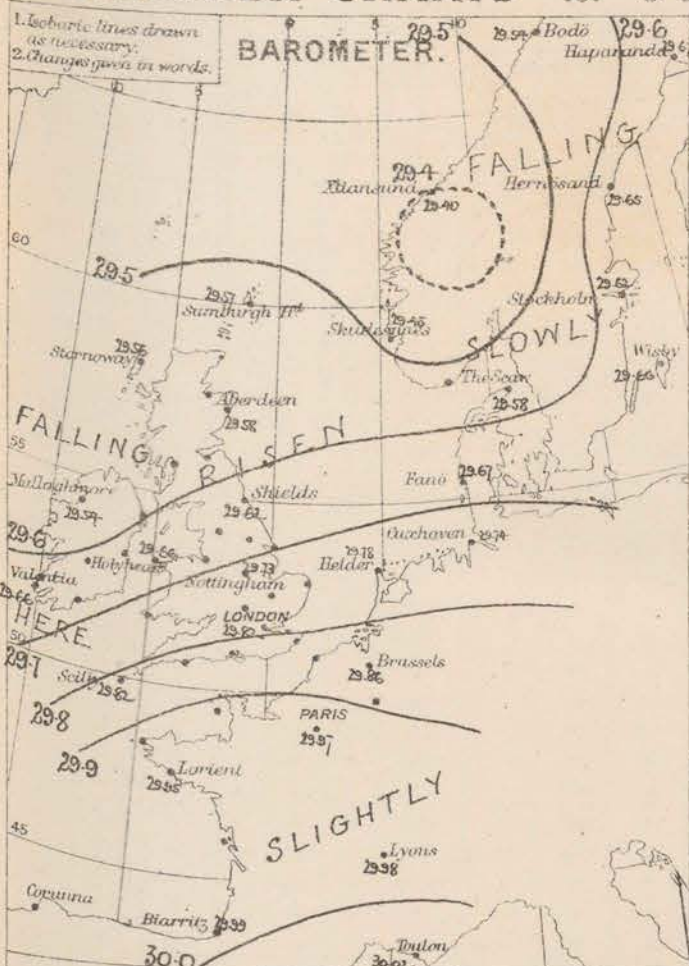 1. Isobaric lines drawn
as necessary.
2. Changes given in words.
BAROMETER.
0
5
10
10
5
29.5
29.54
Bodö
29.6
Haparanda
29.4
FALLING
Xtiansund
29.40
Hernösand
29.65
60
29.5
29.57
Sumburgh Hd
Skudesnaes
29.45
Stockholm
29.62
SLOWLY
Wisby
29.66
Stornoway
29.56
The Scaw
29.58
Aberdeen
29.58
FALLING
55
RISEN
Mullaghmore
29.54
Shields
29.62
Fanö
29.67
29.6
Holyhead
29.66
29.73
Nottingham
29.78
Helder
Cuxhaven
29.74
Valentia
29.66
HERE
50
LONDON
29.80
29.7
Scilly
29.82
Brussels
29.86
29.8
PARIS
29.97
29.9
Lorient
29.95
SLIGHTLY
45
Lyons
29.98
Corunna
Biarritz
29.99
30.0
Toulon